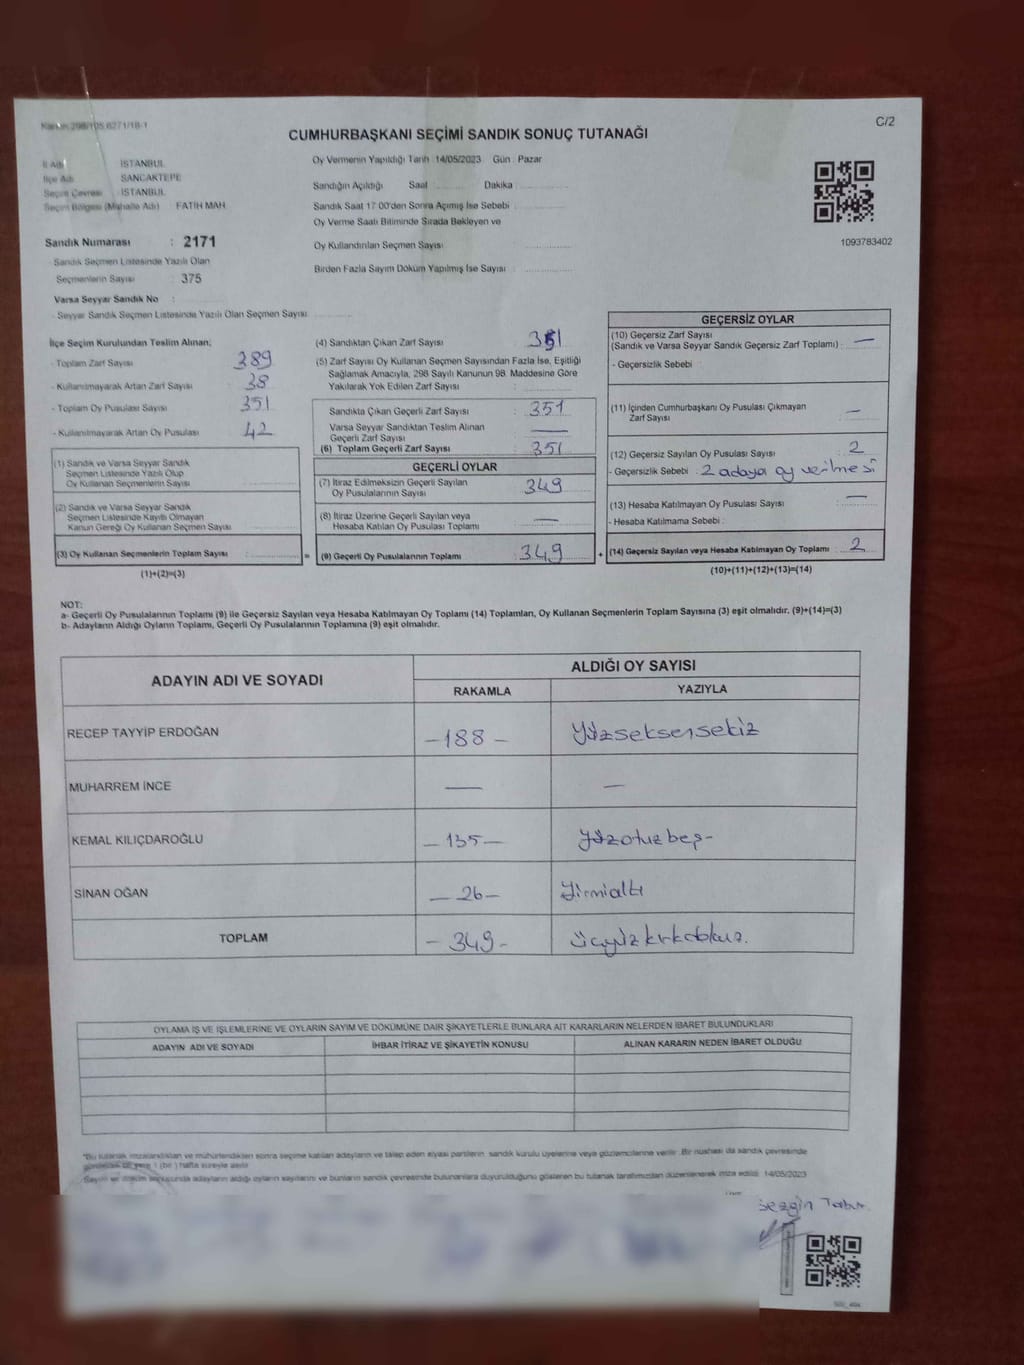 C/2
CUMHURBAŞKANI SEÇİMİ SANDIK SONUÇ TUTANAĞI
İl Adı : İSTANBUL
İlçe Adı : SANCAKTEPE
Seçim Çevresi : İSTANBUL
Seçim Bölgesi (Mahalle Adı) : FATİH MAH.
Sandık Numarası : 2171
- Sandık Seçmen Listesinde Yazılı Olan
Seçmenlerin Sayısı : 375
Varsa Seyyar Sandık No :
- Seyyar Sandık Seçmen Listesinde Yazılı Olan Seçmen Sayısı
Oy Vermenin Yapıldığı Tarih : 14/05/2023 Gün : Pazar
Sandığın Açıldığı Saat Dakika
Sandık Saat 17:00'den Sonra Açımış İse Sebebi :
Oy Verme Saati Bitiminde Sırada Bekleyen ve
Oy Kullandırılan Seçmen Sayısı
Birden Fazla Sayım Döküm Yapılmış İse Sayısı :
1093783402
İlçe Seçim Kurulundan Teslim Alınan;
- Toplam Zarf Sayısı 389
- Kullanılmayarak Artan Zarf Sayısı 38
- Toplam Oy Pusulası Sayısı 351
- Kullanılmayarak Artan Oy Pusulası 42
(1) Sandık ve Varsa Seyyar Sandık
Seçmen Listesinde Yazılı Olup
Oy Kullanan Seçmenlerin Sayısı :
(2) Sandık ve Varsa Seyyar Sandık
Seçmen Listesinde Kayıtlı Olmayan
Kanun Gereği Oy Kullanan Seçmen Sayısı
(3) Oy Kullanan Seçmenlerin Toplam Sayısı :
(1)+(2)=(3)
(4) Sandıktan Çıkan Zarf Sayısı : 351
(5) Zarf Sayısı Oy Kullanan Seçmen Sayısından Fazla İse, Eşitliği
Sağlamak Amacıyla, 298 Sayılı Kanunun 98. Maddesine Göre
Yakılarak Yok Edilen Zarf Sayısı :
Sandıkta Çıkan Geçerli Zarf Sayısı : 351
Varsa Seyyar Sandıktan Teslim Alınan
Geçerli Zarf Sayısı : —
(6) Toplam Geçerli Zarf Sayısı : 351
GEÇERLİ OYLAR
(7) İtiraz Edilmeksizin Geçerli Sayılan
Oy Pusulalarının Sayısı : 349
(8) İtiraz Üzerine Geçerli Sayılan veya
Hesaba Katılan Oy Pusulası Toplamı : —
= (9) Geçerli Oy Pusulalarının Toplamı : 349
GEÇERSİZ OYLAR
(10) Geçersiz Zarf Sayısı
(Sandık ve Varsa Seyyar Sandık Geçersiz Zarf Toplamı) : —
- Geçersizlik Sebebi
(11) İçinden Cumhurbaşkanı Oy Pusulası Çıkmayan
Zarf Sayısı : —
(12) Geçersiz Sayılan Oy Pusulası Sayısı : 2
- Geçersizlik Sebebi : 2 adaya oy verilmesi
(13) Hesaba Katılmayan Oy Pusulası Sayısı : —
- Hesaba Katılmama Sebebi :
+ (14) Geçersiz Sayılan veya Hesaba Katılmayan Oy Toplamı : 2
(10)+(11)+(12)+(13)=(14)
NOT:
a- Geçerli Oy Pusulalarının Toplamı (9) ile Geçersiz Sayılan veya Hesaba Katılmayan Oy Toplamı (14) Toplamları, Oy Kullanan Seçmenlerin Toplam Sayısına (3) eşit olmalıdır. (9)+(14)=(3)
b- Adayların Aldığı Oyların Toplamı, Geçerli Oy Pusulalarının Toplamına (9) eşit olmalıdır.
ADAYIN ADI VE SOYADI
ALDIĞI OY SAYISI
RAKAMLA YAZIYLA
RECEP TAYYİP ERDOĞAN – 188 – Yüzseksensekiz
MUHARREM İNCE — —
KEMAL KILIÇDAROĞLU – 135 – Yüzotuzbeş-
SİNAN OĞAN – 26 – Yirmialtı
TOPLAM – 349 – üçyüzkırkdokuz.
OYLAMA İŞ VE İŞLEMLERİNE VE OYLARIN SAYIM VE DÖKÜMÜNE DAİR ŞİKAYETLERLE BUNLARA AİT KARARLARIN NELERDEN İBARET BULUNDUKLARI
ADAYIN ADI VE SOYADI İHBAR İTİRAZ VE ŞİKAYETİN KONUSU ALINAN KARARIN NEDEN İBARET OLDUĞU
*Bu tutanak imzalandıktan ve mühürlendikten sonra seçime katılan adayların ve talep eden siyasi partilerin sandık kurulu üyelerine veya gözlemcilerine verilir. Bir nüshası da sandık çevresinde
görülecek bir yere 1 (bir) hafta süreyle asılır.
Sayım ve döküm sonucunda adayların aldığı oyların sayılarını ve bunların sandık çevresinde bulunanlara duyurulduğunu gösteren bu tutanak tarafımızdan düzenlenerek imza edildi. 14/05/2023
Sezgin